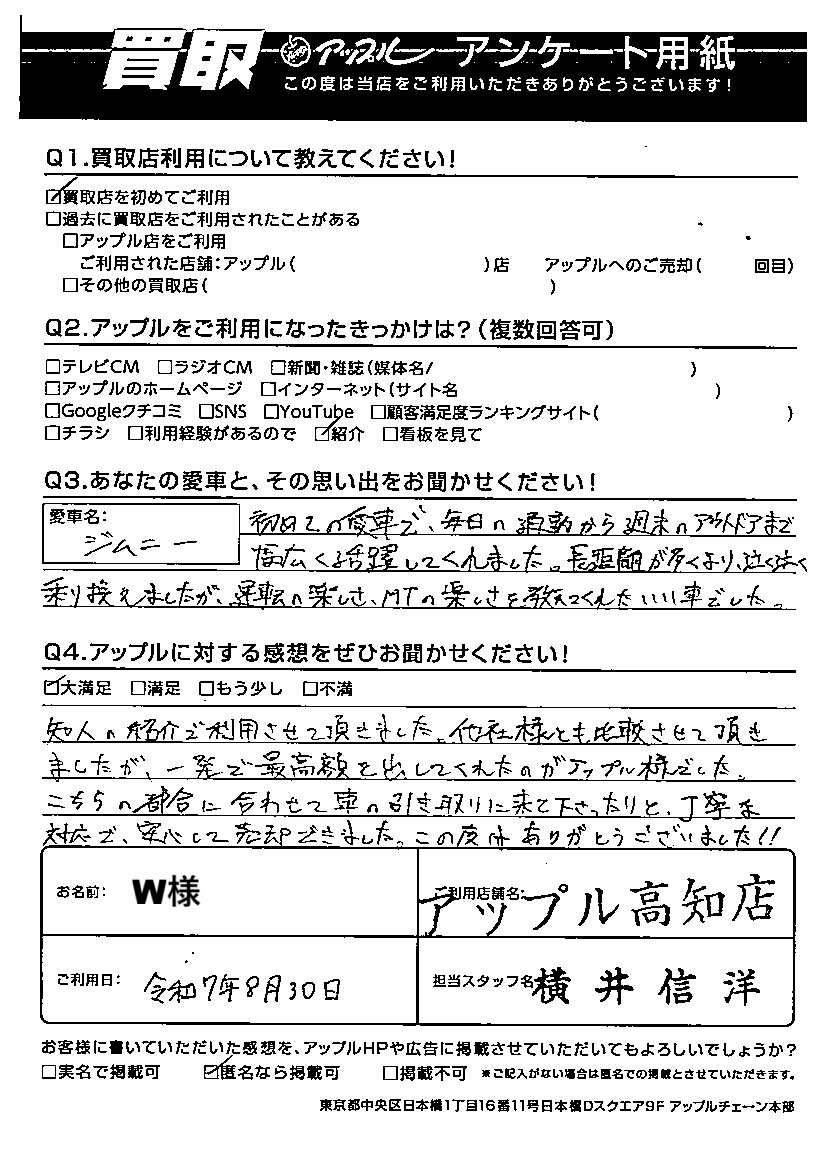 買取 アップル アンケート用紙
この度は当店をご利用いただきありがとうございます！
Q1.買取店利用について教えてください！
☑買取店を初めてご利用
□過去に買取店をご利用されたことがある
□アップル店をご利用
ご利用された店舗：アップル（　）店　アップルへのご売却（　回目）
□その他の買取店（　）
Q2.アップルをご利用になったきっかけは？（複数回答可）
□テレビCM □ラジオCM □新聞・雑誌（媒体名/　）
□アップルのホームページ □インターネット（サイト名　）
□Googleクチコミ □SNS □YouTube □顧客満足度ランキングサイト（　）
□チラシ □利用経験があるので ☑紹介 □看板を見て
Q3.あなたの愛車と、その思い出をお聞かせください！
愛車名：
ジムニー
初めての愛車で、毎日の通勤から週末のアウトドアまで
幅広く活躍してくれました。長距離が多くより、泣く泣く
乗り換えましたが、運転の楽しさ、MTの楽しさを教えてくれたいい車でした。
Q4.アップルに対する感想をぜひお聞かせください！
☑大満足 □満足 □もう少し □不満
知人の紹介で利用させて頂きました。他社様とも比較させて頂き
ましたが、一発で最高額を出してくれたのがアップル様でした。
こちらの都合に合わせて車の引き取りに来て下さったりと、丁寧な
対応で、安心して売却できました。この度はありがとうございました!!
お名前： W様
ご利用店舗名：
アップル高知店
ご利用日： 令和7年8月30日
担当スタッフ名 横井信洋
お客様に書いていただいた感想を、アップルHPや広告に掲載させていただいてもよろしいでしょうか？
□実名で掲載可 ☑匿名なら掲載可 □掲載不可 ※ご記入がない場合は匿名での掲載とさせていただきます。
東京都中央区日本橋1丁目16番11号日本橋Dスクエア9F アップルチェーン本部